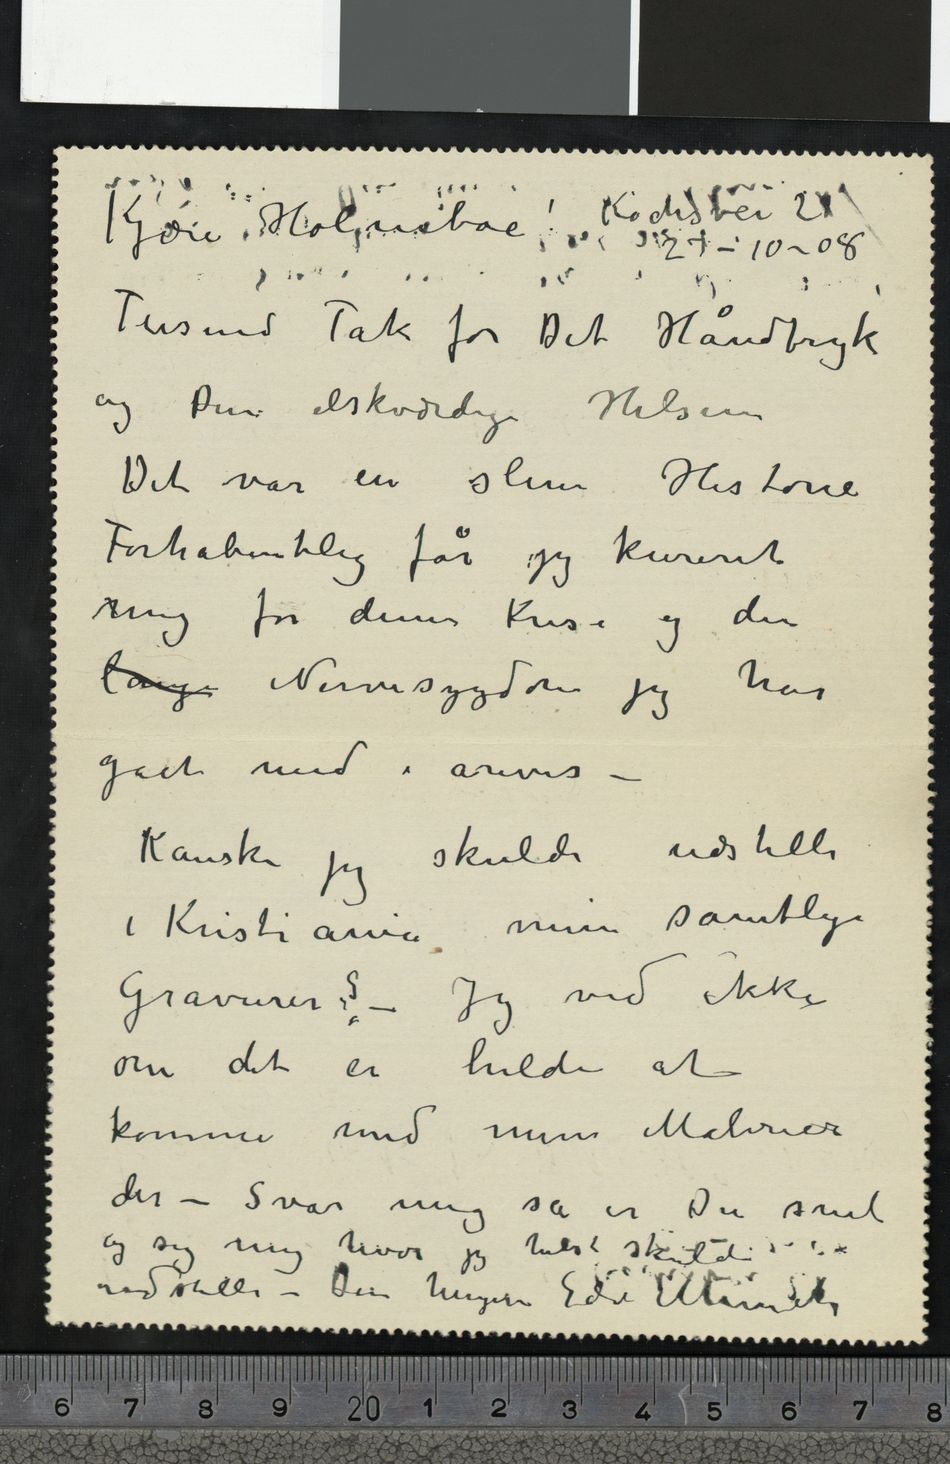 Kjære Holmsboe! Kochsvei 21
21–10–08
Tusind Tak for Dit Håndtryk
og Din elskværdige Hilsen
Det var en slem Historie
Forhabentlig får jeg kureret
mig for denne Krise og den
lange Nervesygdom jeg har
gaat med i arevis –
Kanske jeg skulde udstille
i Kristiania mine samtlige
Gravurer? – Jeg ved ikke
om det er heldi at
komme med mine Malerier
der – Svar mig sa er Du snil
og sig mig hvor jeg helst skulde
udstille – Din hengivne Edv Munch
6 7 8 9 20 1 2 3 4 5 6 7 8